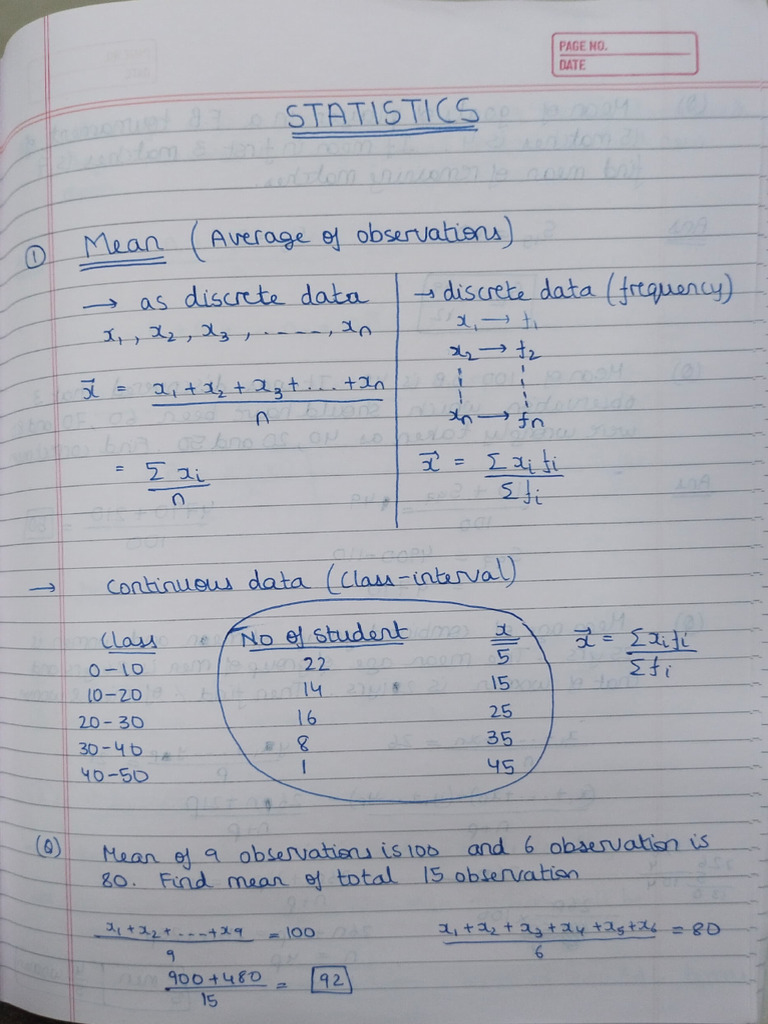 PAGE NO.
DATE
STATISTICS
① Mean (Average of observations)
→ as discrete data
x₁, x₂, x₃, ....., xₙ
x⃗ = x₁ + x₂ + x₃ + ... + xₙ / n
= Σ xᵢ / n
→ discrete data (frequency)
x₁ → f₁
x₂ → f₂
xₙ → fₙ
x⃗ = Σ xᵢ fᵢ / Σ fᵢ
→ continuous data (class-interval)
Class No of student x x⃗ = Σxᵢfᵢ / Σfᵢ
0-10 22 5
10-20 14 15
20-30 16 25
30-40 8 35
40-50 1 45
(Q) Mean of 9 observations is 100 and 6 observation is
80. Find mean of total 15 observation
x₁ + x₂ + ... + x₉ / 9 = 100
x₁ + x₂ + x₃ + x₄ + x₅ + x₆ / 6 = 80
900 + 480 / 15 = 92